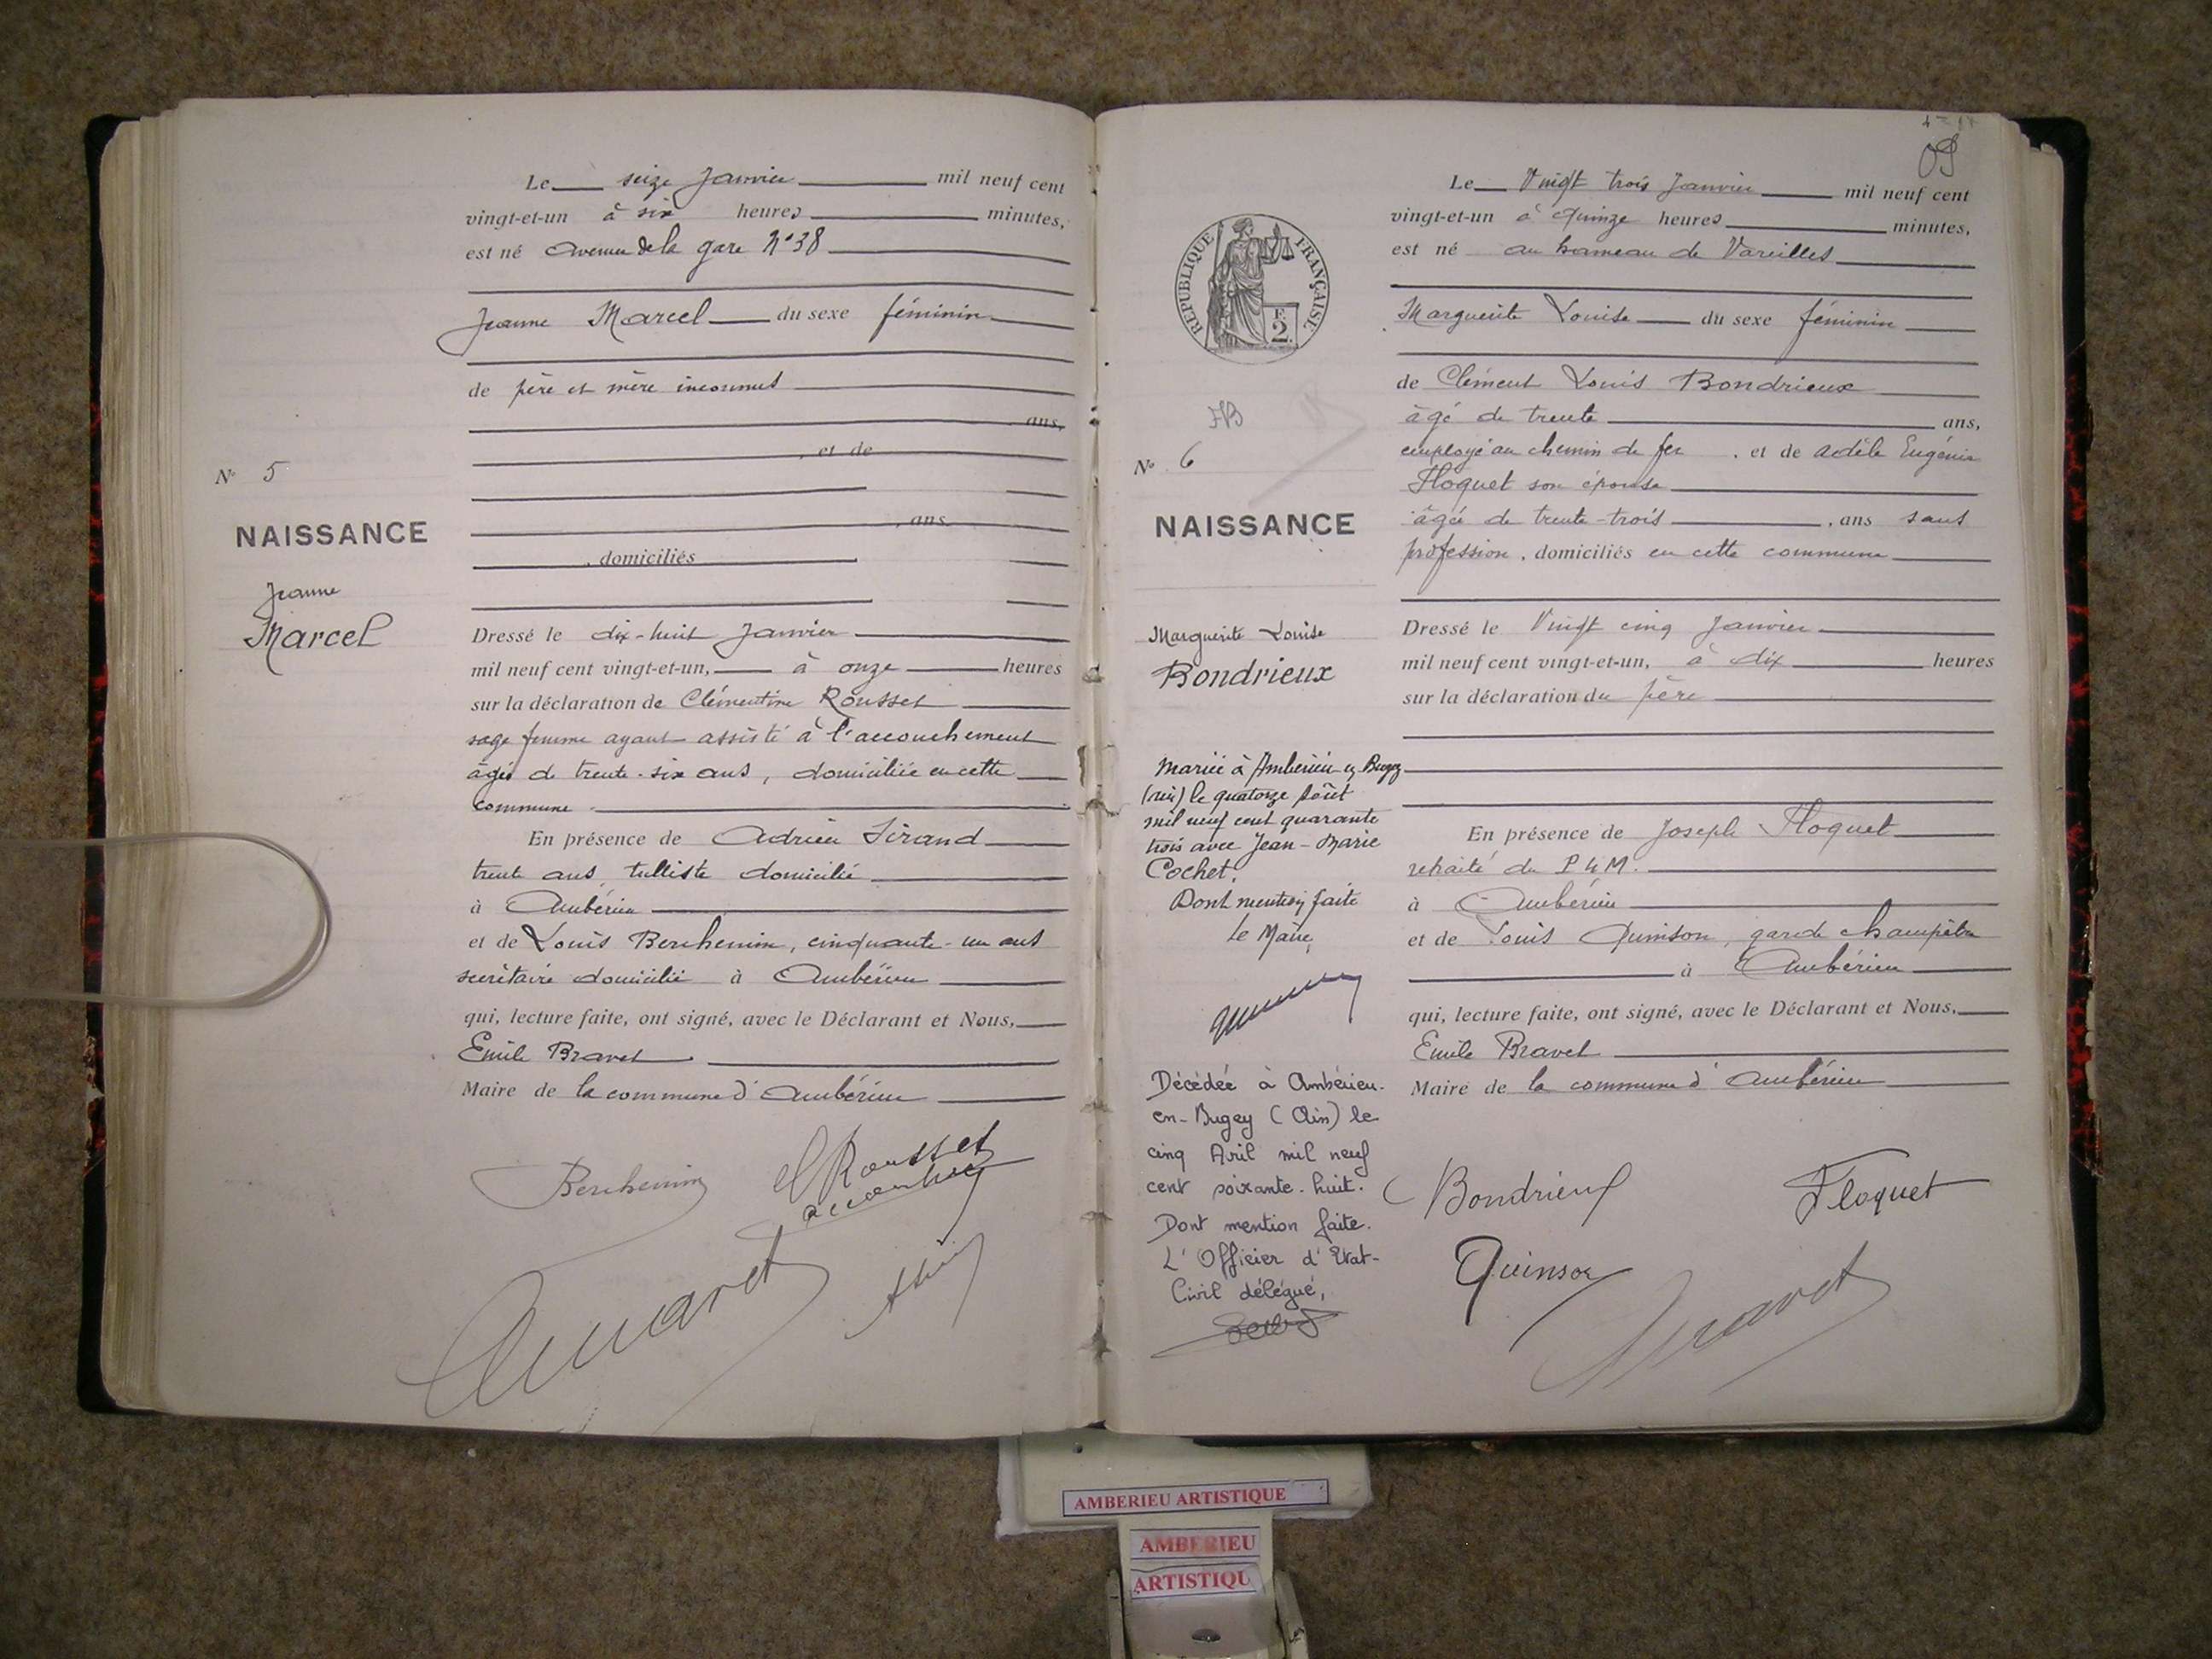 Le seize Janvier mil neuf cent
vingt-et-un à six heures minutes,
est né avenue de la gare N°38
Jeanne Marcel du sexe féminin
de père et mère inconnus
ans,
, et de
N° 5
, ans
NAISSANCE
, domiciliés
Jeanne
Marcel
Dressé le dix-huit Janvier
mil neuf cent vingt-et-un, à onze heures
sur la déclaration de Clémentine Rousset
sage femme ayant assisté à l'accouchement
âgée de trente-six ans, domiciliée en cette
commune
En présence de Adrien Sirand
trente ans, tulliste domicilié
à Ambérieu
et de Louis Berchemin, cinquante-un ans
secrétaire domicilié à Ambérieu
qui, lecture faite, ont signé, avec le Déclarant et Nous,
Emile Bravet
Maire de la commune d'Ambérieu
Berchemin
Rousset
09
Le Vingt trois Janvier mil neuf cent
vingt-et-un à quinze heures minutes,
est né au hameau de Vareilles
REPUBLIQUE FRANÇAISE
F.
2.
Marguerite Louise du sexe féminin
de Clément Louis Bondrieux
âgé de trente ans,
employé au chemin de fer , et de Adèle Eugénie
N° 6
Floquet son épouse
âgée de trente-trois , ans sans
profession , domiciliés en cette commune
NAISSANCE
Marguerite Louise
Bondrieux
Dressé le Vingt cinq Janvier
mil neuf cent vingt-et-un, à dix heures
sur la déclaration du père
Mariée à Ambérieu en Bugey
(Ain) le quatorze Août
mil neuf cent quarante
trois avec Jean-Marie
Cochet.
Dont mention faite
Le Maire,
En présence de Joseph Floquet
retraité du P L M.
à Ambérieu
et de Louis Quinson, garde champêtre
à Ambérieu
qui, lecture faite, ont signé, avec le Déclarant et Nous,
Emile Bravet
Maire de la commune d'Ambérieu
Décédée à Ambérieu-
en-Bugey (Ain) le
cinq Avril mil neuf
cent soixante-huit.
Dont mention faite.
L'Officier d'Etat-
Civil délégué,
Bondrieux Floquet
Quinson
AMBERIEU ARTISTIQUE
AMBERIEU
ARTISTIQU